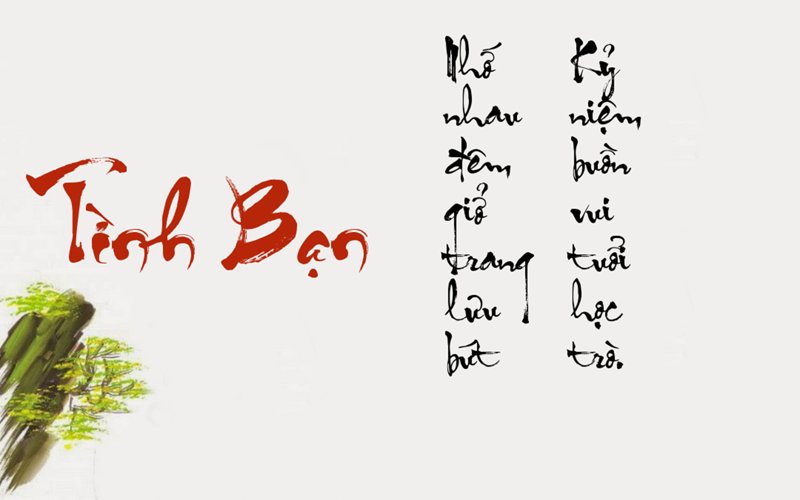 Tình Bạn
Nhớ
nhau
đêm
giở
trang
lưu
bút
Kỷ
niệm
buồn
vui
tuổi
học
trò.